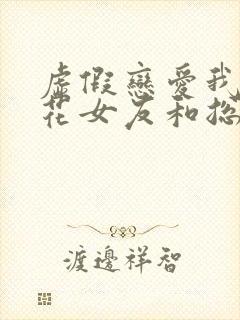 虛假戀愛我
花女友和搃
渡邊祥智